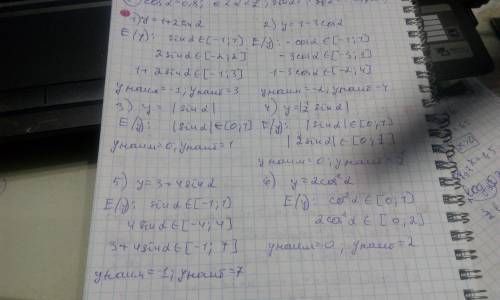 1) y = 1 + 2sin α
E(y): sin α ∈ [-1; 1]
2sin α ∈ [-2; 2]
1 + 2sin α ∈ [-1; 3]
y наим = -1; y наиб = 3
2) y = 1 - 3cos α
E(y): - cos α ∈ [-1; 1]
-3cos α ∈ [-3; 3]
1 - 3cos α ∈ [-2; 4]
y наим = -2, y наиб = 4
3) y = |sin α|
E(y): |sin α| ∈ [0; 1]
y наим = 0, y наиб = 1
4) y = |2 sin α|
E(y): |sin α| ∈ [0; 1]
|2sin α| ∈ [0;
y наим = 0, y наиб =
5) y = 3 + 4sin α
E(y): sin α ∈ [-1; 1]
4 sin α ∈ [-4; 4]
3 + 4sin α ∈ [-1; 7]
y наим = -1; y наиб = 7
6) y = 2cos² α
E(y): cos² α ∈ [0; 1]
2cos² α ∈ [0; 2]
y наим = 0, y наиб = 2